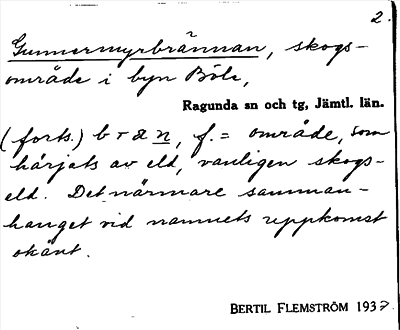 2.
Gunnermyrbrännan, skogs-
område i byn Böle,
Ragunda sn och tg, Jämtl. län.
(forts.) n, f. = område, som
härjats av eld, vanligen skogs-
eld. Det närmare samman-
hanget vid namnets uppkomst
okänt.
BERTIL FLEMSTRÖM 1937.